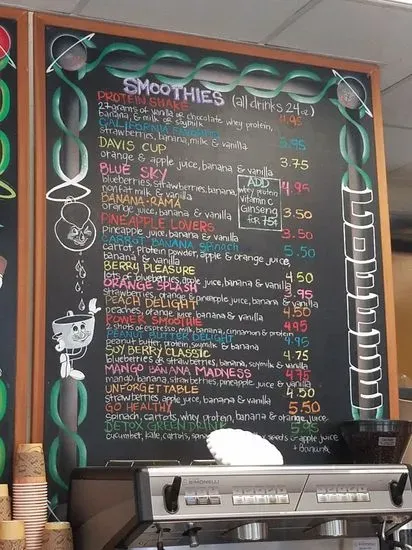 SMOOTHIES (all drinks 24 oz.)
PROTEIN SHAKE 4.95
27 grams of vanilla or chocolate whey protein,
banana, & milk or soymilk
CALIFORNIA 3.95
strawberries, banana, milk & vanilla
DAVIS CUP 3.75
orange & apple juice, banana & vanilla
BLUE SKY 4.95
blueberries, strawberries, banana,
nonfat milk & vanilla
ADD
whey protein
vitamin C
Ginseng
for .75¢
BANANA-RAMA 3.50
orange juice, banana & vanilla
PINEAPPLE LOVERS 3.50
pineapple juice, banana & vanilla
CARROT BANANA SPINACH 5.50
carrot, protein powder, apple & orange juice,
banana & vanilla
BERRY PLEASURE 4.50
lots of blueberries, apple juice, banana & vanilla
ORANGE SPLASH 3.95
strawberries, orange & pineapple juice, banana & vanilla
PEACH DELIGHT 4.50
peaches, orange juice, banana & vanilla
POWER SMOOTHIE 4.95
2 shots of espresso, milk, banana, cinnamon & protein
PEANUT BUTTER DELIGHT 4.95
peanut butter, protein, soymilk & banana
SOY BERRY CLASSIC 4.75
blueberries or strawberries, banana, soymilk & vanilla
MANGO BANANA MADNESS 4.75
mango, banana, strawberries, pineapple juice & vanilla
UNFORGETTABLE 4.50
strawberries, apple juice, banana & vanilla
GO HEALTHY 5.50
spinach, carrots, whey protein, banana & orange juice
DETOX GREEN DRINK 5.95
cucumber, kale, carrots, seeds & apple juice
+ banana
COFFEE
SIMONELLI